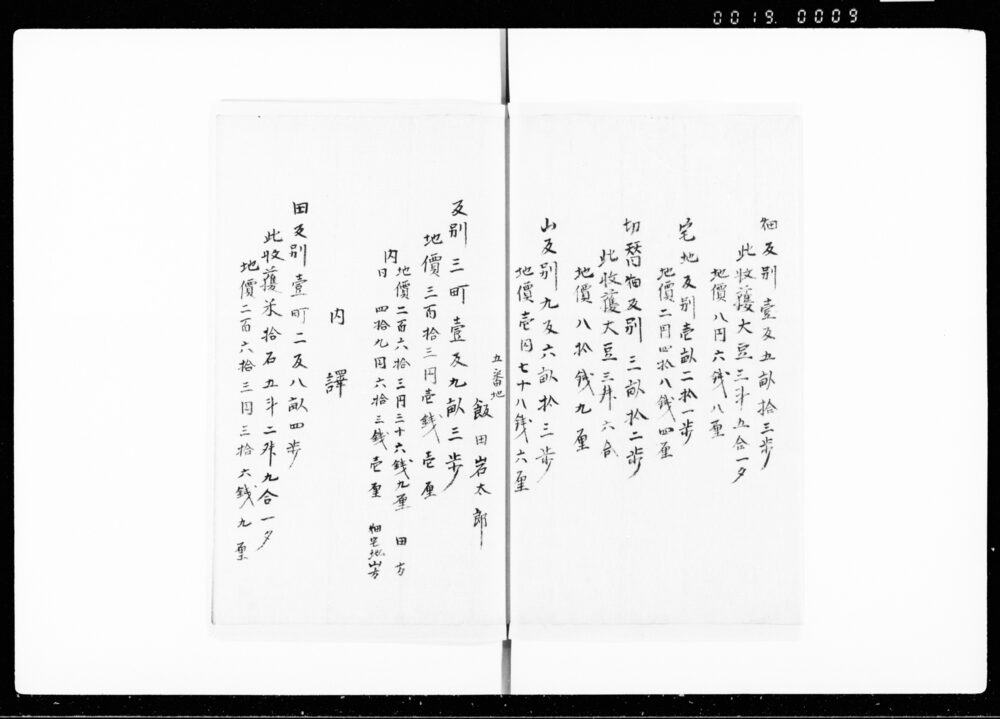 0019. 0009
畑反別壹反五畝拾三歩
此收穫大豆三斗五合一夕
地價八円六銭八厘
宅地反別壱畝二拾一歩
地價二円四拾八銭四厘
切替畑反別三畝拾二歩
此收穫大豆三升六合
地價八拾銭九厘
山反別九反六畝拾三歩
地價壱円七十八銭六厘
五番地
飯田岩太郎
反別三町壹反九畝三歩
地價三百拾三円壱銭壱厘
内
地價二百六拾三円三十六銭九厘 田方
日 四拾九円六拾三銭壱厘 畑宅地山方
内譯
田反別壹町二反八畝四歩
此收穫米拾石五斗二升九合一夕
地價二百六拾三円三拾六銭九厘